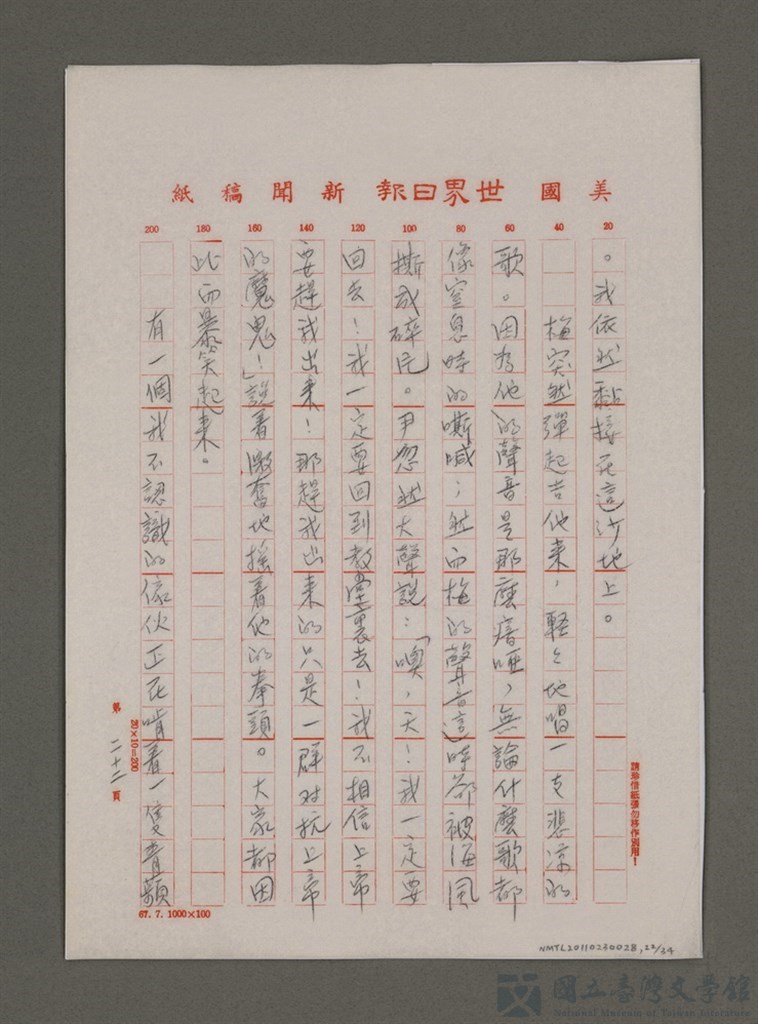 美國世界日報新聞稿紙
20 40 60 80 100 120 140 160 180 200
。我依然黏接在這沙地上。
梅突然彈起吉他來，輕々地唱一支悲涼的
歌。因為他的聲音是那麼瘖啞，無論什麼歌都
像窒息時的嘶喊；然而梅的聲音這時都被海風
撕成碎片。尹忽然大聲說：「噢，天！我一定要
回去！我一定要回到教堂裏去！我不相信上帝
要趕我出來！那趕我出來的只是一群对抗上帝
的魔鬼！」說着激奮地搖着他的拳頭。大家都因
此而暴笑起來。
有一個我不認識的傢伙正在啃着一隻青蘋
請珍惜紙張勿移作別用！
第二十二頁
20×10=200
67. 7. 1000×100
NMTL20110230028, 22/34
國立臺灣文學館
National Museum of Taiwan Literature